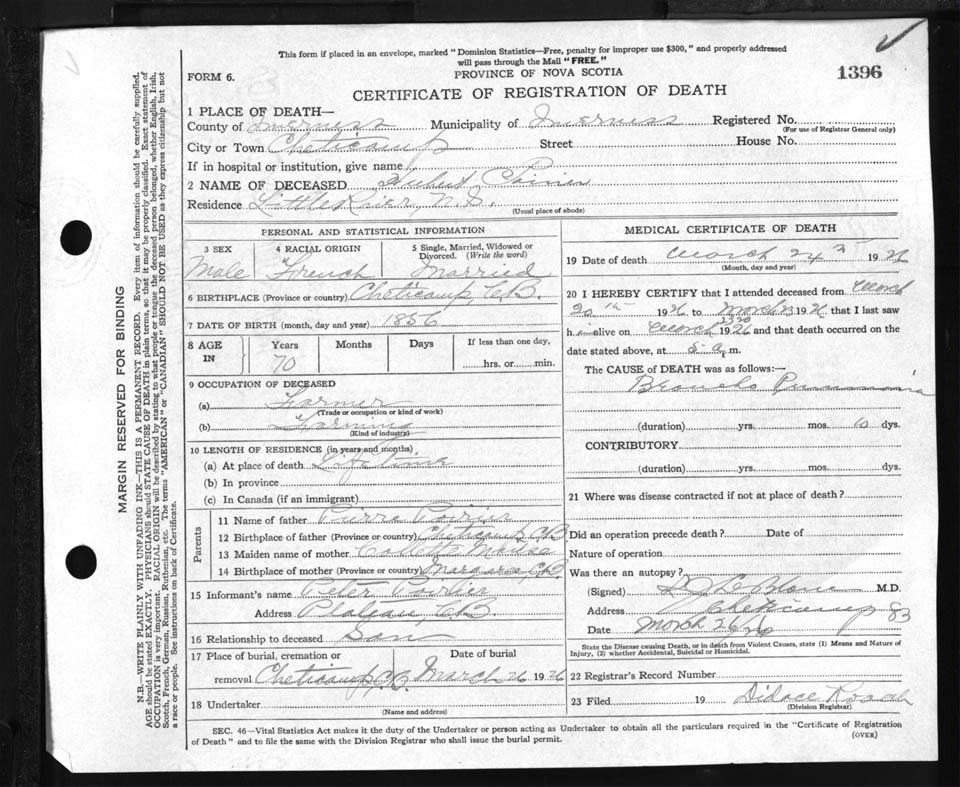 This form if placed in an envelope, marked "Dominion Statistics—Free, penalty for improper use $300," and properly addressed
will pass through the Mail "FREE."
FORM 6.
PROVINCE OF NOVA SCOTIA
1396
CERTIFICATE OF REGISTRATION OF DEATH
1 PLACE OF DEATH—
County of Inverness Municipality of Inverness Registered No.
(For use of Registrar General only)
City or Town Cheticamp Street House No.
If in hospital or institution, give name
2 NAME OF DECEASED Poirier
Residence Little River, N.S.
(Usual place of abode)
PERSONAL AND STATISTICAL INFORMATION
3 SEX 4 RACIAL ORIGIN 5 Single, Married, Widowed or
Divorced. (Write the word)
Male French Married
6 BIRTHPLACE (Province or country) Cheticamp C.B.
7 DATE OF BIRTH (month, day and year) 1856
8 AGE IN Years Months Days If less than one day,
70 hrs. or min.
9 OCCUPATION OF DECEASED
(a) Farmer
(Trade or occupation or kind of work)
(b) Farming
(Kind of industry)
10 LENGTH OF RESIDENCE (in years and months)
(a) At place of death Lifetime
(b) In province
(c) In Canada (if an immigrant)
Parents
11 Name of father Pierre Poirier
12 Birthplace of father (Province or country) Cheticamp C.B.
13 Maiden name of mother
14 Birthplace of mother (Province or country) Margaree, C.B.
15 Informant's name Peter Poirier
Address Plateau, C.B.
16 Relationship to deceased Son
17 Place of burial, cremation or Date of burial
removal Cheticamp, C.B. March 26 1926
18 Undertaker
(Name and address)
MEDICAL CERTIFICATE OF DEATH
19 Date of death March 24 1926
(Month, day and year)
20 I HEREBY CERTIFY that I attended deceased from March
20th 1926 to March 23 1926 that I last saw
h im alive on March 23 1926 and that death occurred on the
date stated above, at 5 a.m.
The CAUSE of DEATH was as follows:—
Broncho Pneumonia
(duration) yrs. mos. 10 dys.
CONTRIBUTORY
(duration) yrs. mos. dys.
21 Where was disease contracted if not at place of death?
Did an operation precede death? Date of
Nature of operation
Was there an autopsy?
(Signed) LeBlanc M.D.
Address Cheticamp
83
Date March 26/26
State the Disease causing Death, or in death from Violent Causes, state (1) Means and Nature of
Injury, (2) whether Accidental, Suicidal or Homicidal.
22 Registrar's Record Number
23 Filed 19 Didace Roach
(Division Registrar)
SEC. 46—Vital Statistics Act makes it the duty of the Undertaker or person acting as Undertaker to obtain all the particulars required in the "Certificate of Registration
of Death" and to file the same with the Division Registrar who shall issue the burial permit.
(OVER)
MARGIN RESERVED FOR BINDING
N.B.—WRITE PLAINLY WITH UNFADING INK—THIS IS A PERMANENT RECORD. Every item of information should be carefully supplied.
AGE should be stated EXACTLY. PHYSICIANS should STATE CAUSE OF DEATH in plain terms, so that it may be properly classified. Exact statement of
OCCUPATION is very important. RACIAL ORIGIN will be described by stating to what people or tongue the deceased person belonged, whether English, Irish,
Scotch, French, German, Russian, Ruthenian, etc. The terms "AMERICAN" or "CANADIAN" SHOULD NOT BE USED as they express citizenship but not
a race or people. See instructions on back of Certificate.